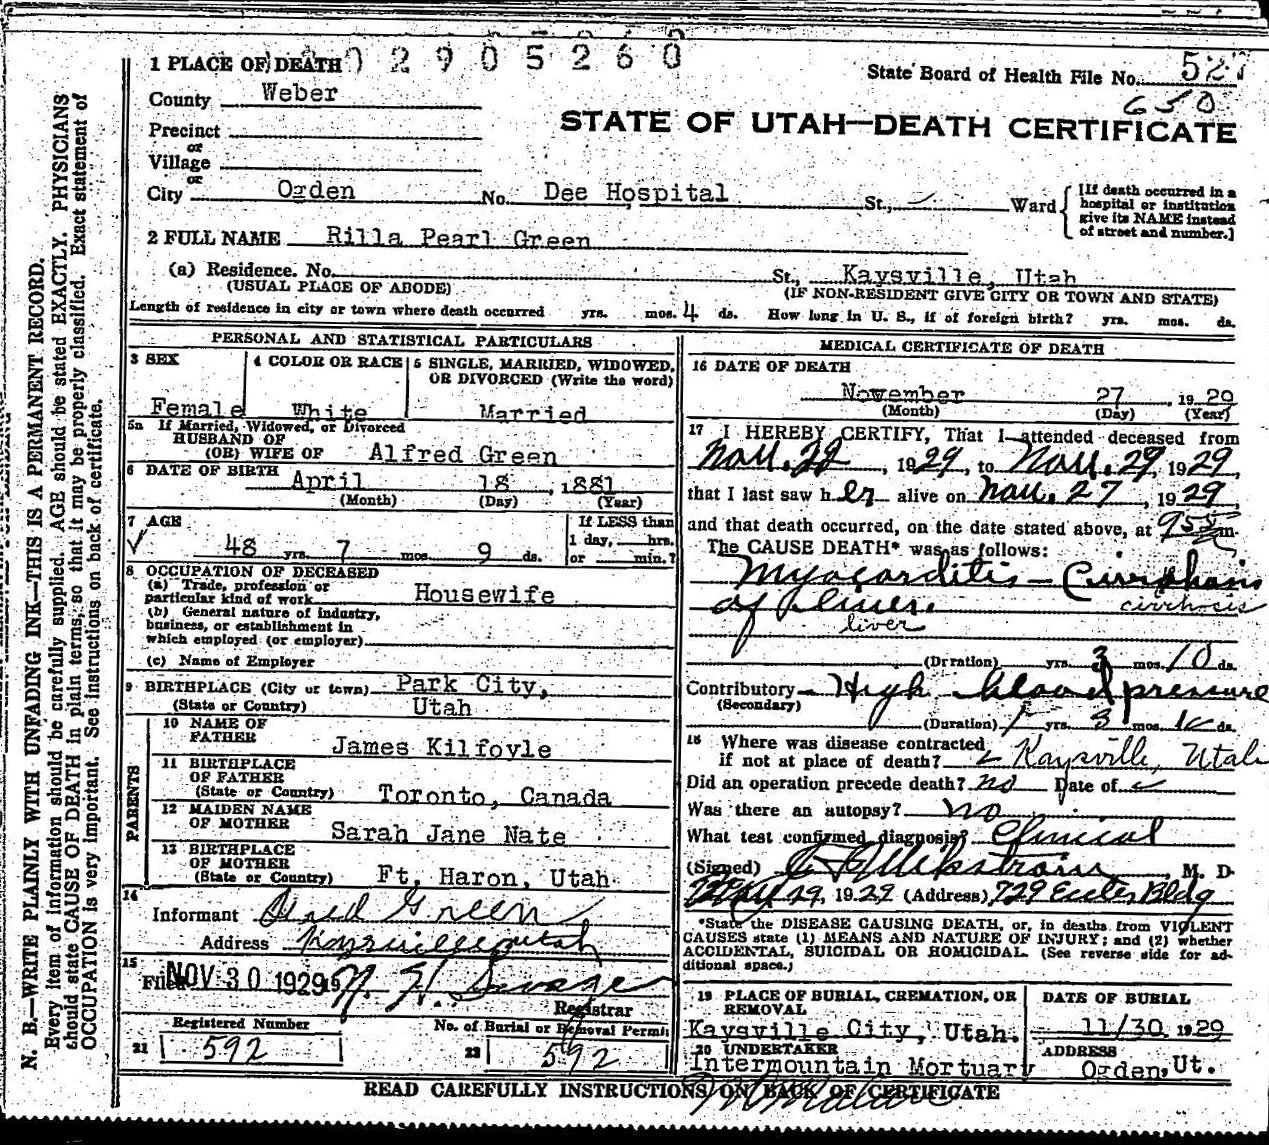 2905260
1 PLACE OF DEATH
State Board of Health File No. 527
County Weber
650
STATE OF UTAH—DEATH CERTIFICATE
Precinct
or
Village
or
City Ogden No. Dee Hospital St., Ward
[If death occurred in a hospital or institution give its NAME instead of street and number.]
2 FULL NAME Rilla Pearl Green
(a) Residence. No. St., Kaysville, Utah
(USUAL PLACE OF ABODE) (IF NON-RESIDENT GIVE CITY OR TOWN AND STATE)
Length of residence in city or town where death occurred yrs. mos. 4 ds. How long in U. S., if of foreign birth? yrs. mos. ds.
PERSONAL AND STATISTICAL PARTICULARS
3 SEX
Female
4 COLOR OR RACE
White
5 SINGLE, MARRIED, WIDOWED,
OR DIVORCED (Write the word)
Married
5a If Married, Widowed, or Divorced
HUSBAND OF
(OR) WIFE OF Alfred Green
6 DATE OF BIRTH April 18, 1881
(Month) (Day) (Year)
7 AGE
48 yrs. 7 mos 9 ds.
If LESS than
1 day, hrs.
or min.?
8 OCCUPATION OF DECEASED
(a) Trade, profession or
particular kind of work Housewife
(b) General nature of industry,
business, or establishment in
which employed (or employer)
(c) Name of Employer
9 BIRTHPLACE (City or town) Park City,
(State or Country) Utah
PARENTS
10 NAME OF
FATHER James Kilfoyle
11 BIRTHPLACE
OF FATHER
(State or Country) Toronto, Canada
12 MAIDEN NAME
OF MOTHER Sarah Jane Nate
13 BIRTHPLACE
OF MOTHER
(State or Country) Ft, Haron, Utah
14
Informant Alfred Green
Address Kaysville Utah
15
Filed NOV 30 1929
Registrar
Registered Number
21 592
No. of Burial or Removal Permit
22 592
MEDICAL CERTIFICATE OF DEATH
16 DATE OF DEATH
November 27, 1929
(Month) (Day) (Year)
17 I HEREBY CERTIFY, That I attended deceased from
Nov. 22, 1929, to Nov. 29, 1929,
that I last saw her alive on Nov. 27, 1929
and that death occurred, on the date stated above, at 955 m.
The CAUSE DEATH* was as follows:
Myocarditis –
of liver.
cirrhosis
liver
(Duration) yrs. 3 mos. 10 ds.
Contributory High blood pressure
(Secondary)
(Duration) yrs. 3 mos. ds.
18 Where was disease contracted
if not at place of death? Kaysville, Utah
Did an operation precede death? no Date of
Was there an autopsy? no
What test confirmed diagnosis? Clinical
(Signed) M. D.
29, 1929 (Address) 729 Eccles Bldg
*State the DISEASE CAUSING DEATH, or, in deaths from VIOLENT
CAUSES state (1) MEANS AND NATURE OF INJURY; and (2) whether
ACCIDENTAL, SUICIDAL OR HOMICIDAL. (See reverse side for ad-
ditional space.)
19 PLACE OF BURIAL, CREMATION, OR
REMOVAL
Kaysville City, Utah.
DATE OF BURIAL
11/30 1929
20 UNDERTAKER
Intermountain Mortuary
ADDRESS
Ogden, Ut.
READ CAREFULLY INSTRUCTIONS ON BACK OF CERTIFICATE
N. B.—WRITE PLAINLY WITH UNFADING INK—THIS IS A PERMANENT RECORD.
Every item of information should be carefully supplied. AGE should be stated EXACTLY. PHYSICIANS
should state CAUSE OF DEATH in plain terms, so that it may be properly classified. Exact statement of
OCCUPATION is very important. See instructions on back of certificate.